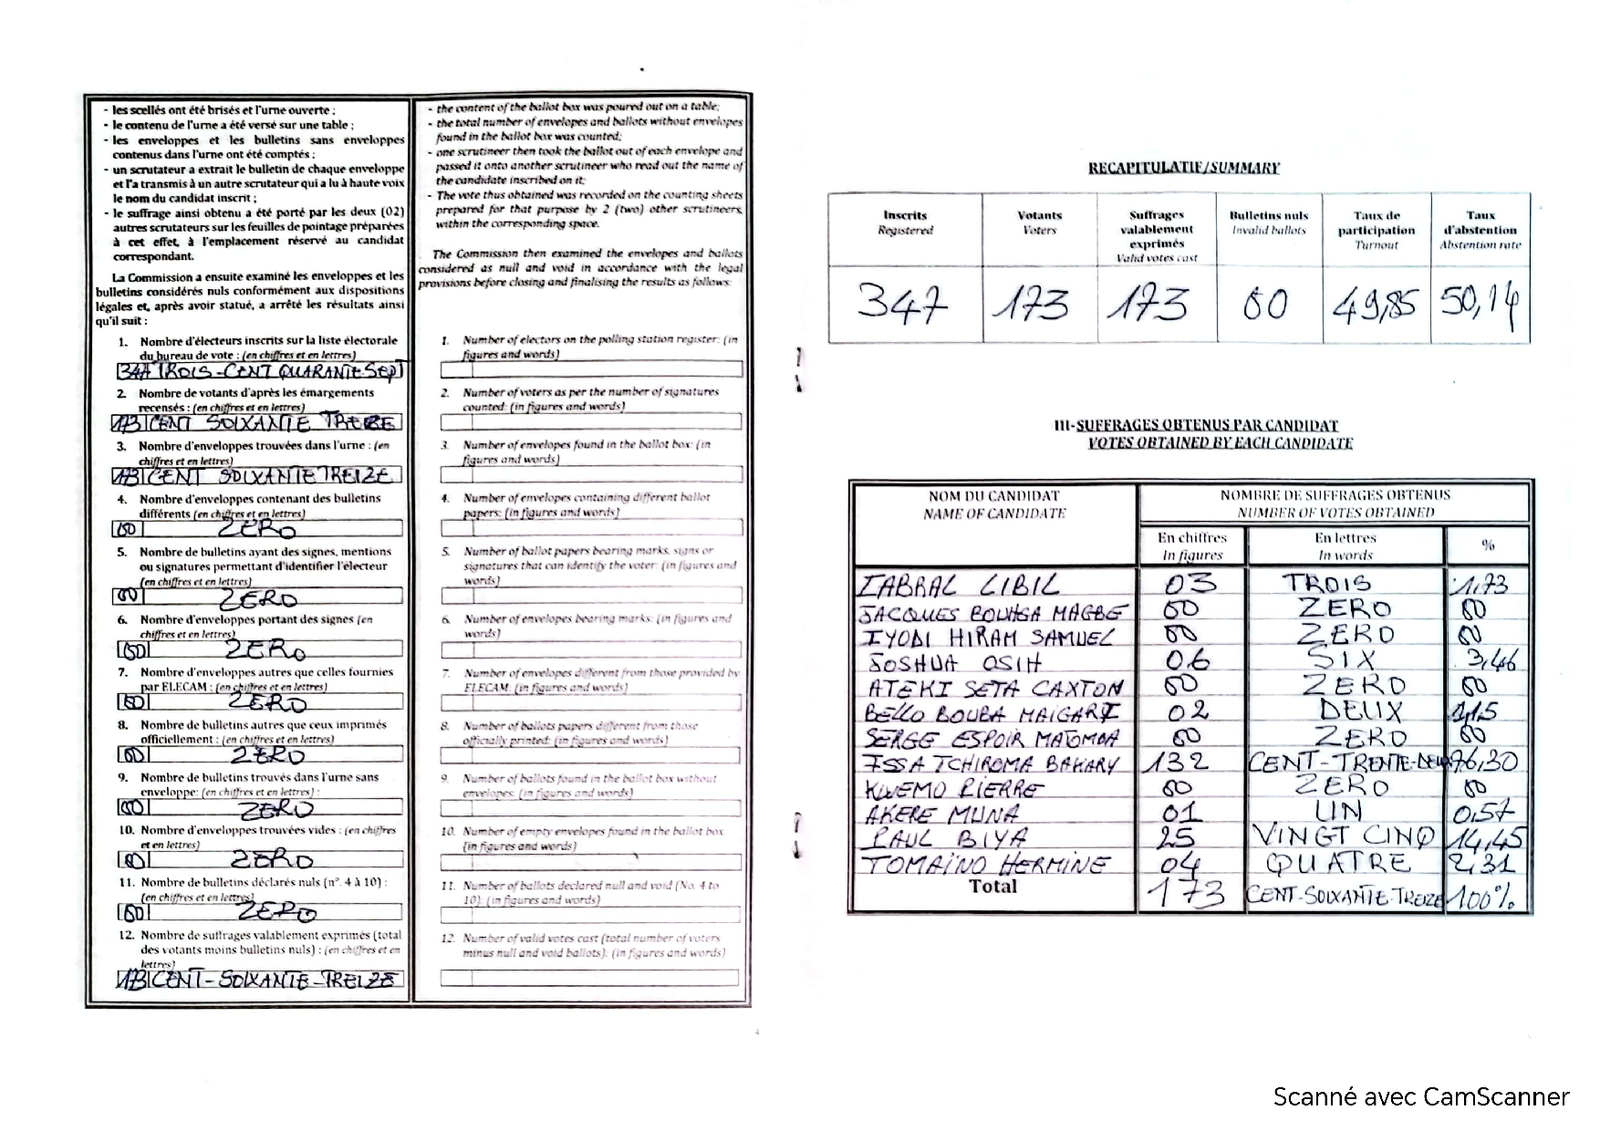 - les scellés ont été brisés et l'urne ouverte ;
- le contenu de l'urne a été versé sur une table ;
- les enveloppes et les bulletins sans enveloppes
contenus dans l'urne ont été comptés ;
- un scrutateur a extrait le bulletin de chaque enveloppe
et l'a transmis à un autre scrutateur qui a lu à haute voix
le nom du candidat inscrit ;
- le suffrage ainsi obtenu a été porté par les deux (02)
autres scrutateurs sur les feuilles de pointage préparées
à cet effet, à l'emplacement réservé au candidat
correspondant.
La Commission a ensuite examiné les enveloppes et les
bulletins considérés nuls conformément aux dispositions
légales et, après avoir statué, a arrêté les résultats ainsi
qu'il suit :
1. Nombre d'électeurs inscrits sur la liste électorale
du bureau de vote : (en chiffres et en lettres)
347 TROIS-CENT QUARANTE SEPT
2. Nombre de votants d'après les émargements
recensés : (en chiffres et en lettres)
173 CENT SOIXANTE TREIZE
3. Nombre d'enveloppes trouvées dans l'urne : (en
chiffres et en lettres)
173 CENT SOIXANTE TREIZE
4. Nombre d'enveloppes contenant des bulletins
différents (en chiffres et en lettres)
00 ZERO
5. Nombre de bulletins ayant des signes, mentions
ou signatures permettant d'identifier l'électeur
(en chiffres et en lettres)
00 ZERO
6. Nombre d'enveloppes portant des signes (en
chiffres et en lettres)
00 ZERO
7. Nombre d'enveloppes autres que celles fournies
par ELECAM : (en chiffres et en lettres)
00 ZERO
8. Nombre de bulletins autres que ceux imprimés
officiellement : (en chiffres et en lettres)
00 ZERO
9. Nombre de bulletins trouvés dans l'urne sans
enveloppe: (en chiffres et en lettres) :
00 ZERO
10. Nombre d'enveloppes trouvées vides : (en chiffres
et en lettres)
00 ZERO
11. Nombre de bulletins déclarés nuls (n°. 4 à 10) :
(en chiffres et en lettres)
00 ZERO
12. Nombre de suffrages valablement exprimés (total
des votants moins bulletins nuls) : (en chiffres et en
lettres)
173 CENT-SOIXANTE-TREIZE
- the content of the ballot box was poured out on a table;
- the total number of envelopes and ballots without envelopes
found in the ballot box was counted;
- one scrutineer then took the ballot out of each envelope and
passed it onto another scrutineer who read out the name of
the candidate inscribed on it;
- The vote thus obtained was recorded on the counting sheets
prepared for that purpose by 2 (two) other scrutineers,
within the corresponding space.
The Commission then examined the envelopes and ballots
considered as null and void in accordance with the legal
provisions before closing and finalising the results as follows:
1. Number of electors on the polling station register: (in
figures and words)
2. Number of voters as per the number of signatures
counted: (in figures and words)
3. Number of envelopes found in the ballot box: (in
figures and words)
4. Number of envelopes containing different ballot
papers: (in figures and words)
5. Number of ballot papers bearing marks, signs or
signatures that can identify the voter: (in figures and
words)
6. Number of envelopes bearing marks: (in figures and
words)
7. Number of envelopes different from those provided by
ELECAM: (in figures and words)
8. Number of ballots papers different from those
officially printed: (in figures and words)
9. Number of ballots found in the ballot box without
envelopes: (in figures and words)
10. Number of empty envelopes found in the ballot box
(in figures and words)
11. Number of ballots declared null and void (No. 4 to
10): (in figures and words)
12. Number of valid votes cast (total number of voters
minus null and void ballots): (in figures and words)
RECAPITULATIF/SUMMARY
Inscrits Registered | Votants Voters | Suffrages valablement exprimés Valid votes cast | Bulletins nuls Invalid ballots | Taux de participation Turnout | Taux d'abstention Abstention rate
347 173 173 00 49,85 50,14
III-SUFFRAGES OBTENUS PAR CANDIDAT
VOTES OBTAINED BY EACH CANDIDATE
NOM DU CANDIDAT NOMBRE DE SUFFRAGES OBTENUS
NAME OF CANDIDATE NUMBER OF VOTES OBTAINED
En chiffres En lettres %
In figures In words
CABRAL LIBII 03 TROIS 1,73
JACQUES BOUHGA HAGBE 00 ZERO 00
IYODI HIRAM SAMUEL 00 ZERO 00
JOSHUA OSIH 06 SIX 3,46
ATEKI SETA CAXTON 00 ZERO 00
BELLO BOUBA MAIGARI 02 DEUX 1,15
SERGE ESPOIR MATOMBA 00 ZERO 00
ISSA TCHIROMA BAKARY 132 CENT-TRENTE-DEUX 76,30
KWEMO PIERRE 00 ZERO 00
AKERE MUNA 01 UN 0,57
PAUL BIYA 25 VINGT CINQ 14,45
TOMAÏNO HERMINE 04 QUATRE 2,31
Total 173 CENT-SOIXANTE-TREIZE 100%
Scanné avec CamScanner